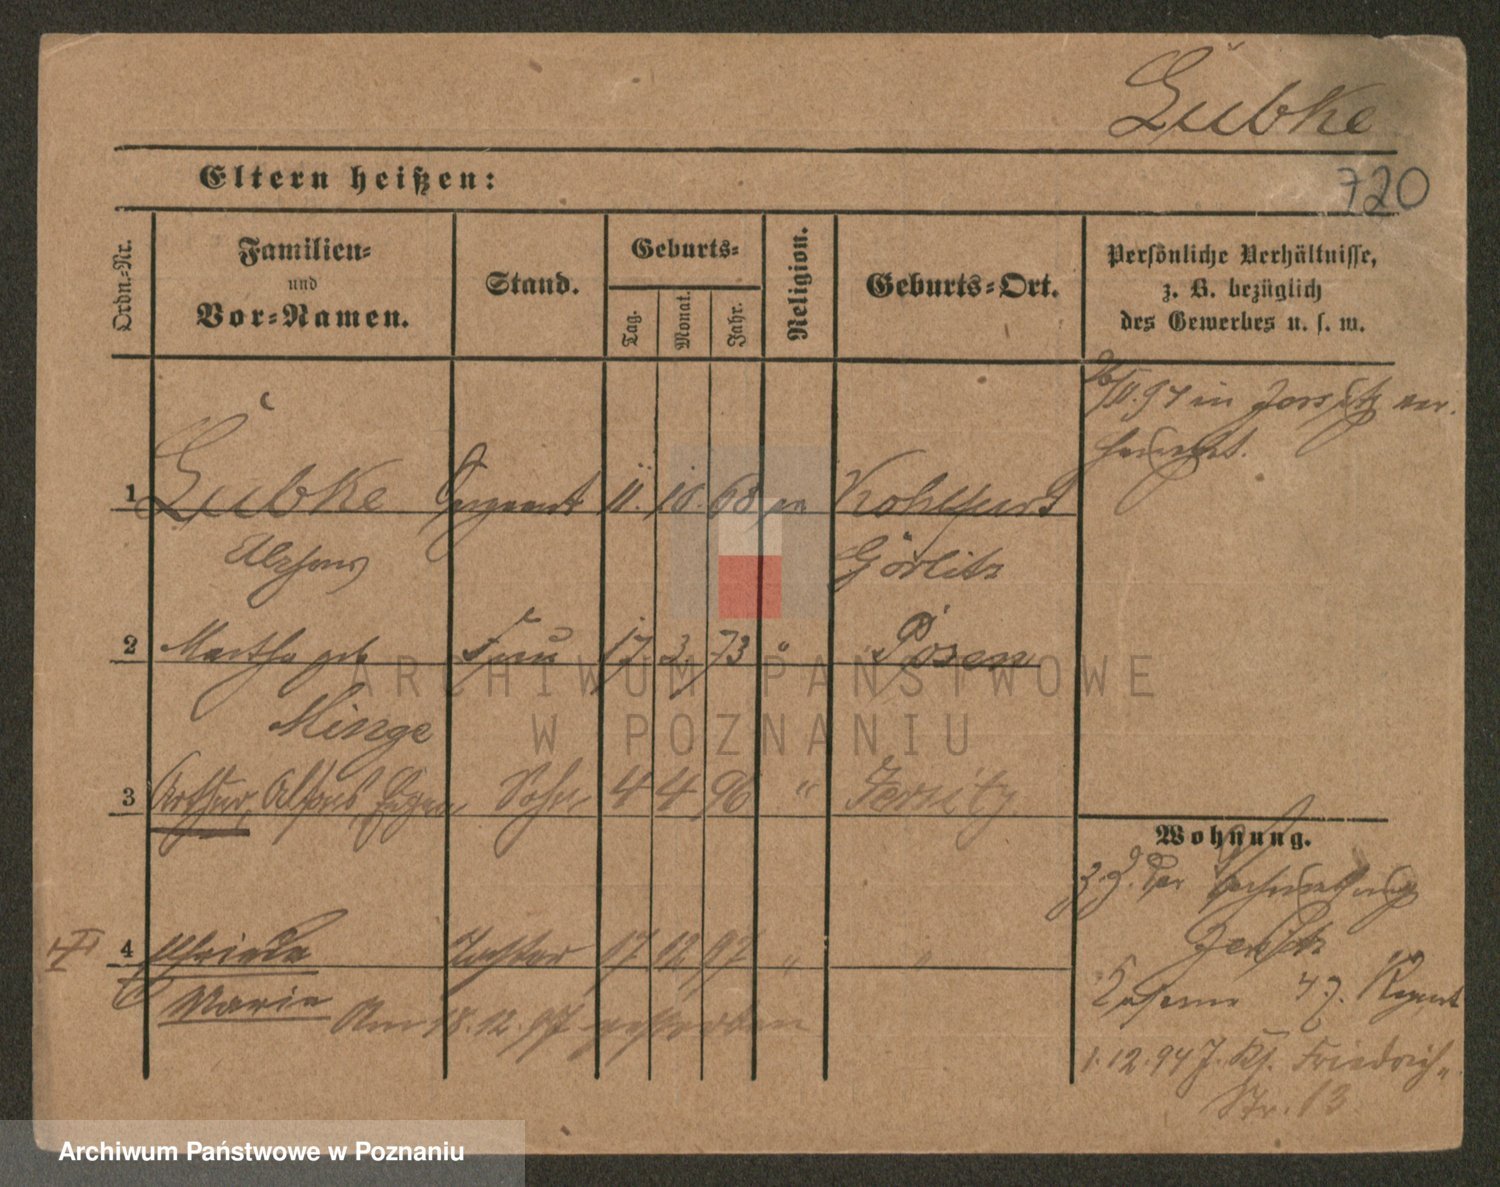 Lübke
720
Eltern heißen:
Ordn.-Nr.
Familien-
und
Vor-Namen.
Stand.
Geburts-
Tag.
Monat.
Jahr.
Religion.
Geburts-Ort.
Persönliche Verhältnisse,
z. B. bezüglich
des Gewerbes u. s. w.
in Jersitz ver-
heirathet.
1 Lübke Sergeant 11. 10. 68 ev Kohlfurt
Alphons Görlitz
2 Martha geb Frau 17 3 73 " Posen
Minge
3 Arthur, Alfons, Eugen Sohn 4 4 96 " Jersitz
Wohnung.
z. Z. der Verheirathung
Jersitz
4 Elfriede Tochter 17 12 97 " "
Marie
Kaserne 47. Regmt
Am 18.12.97 gestorben
1.12.94 J. Kl. Friedrich-
Str. 13
ARCHIWUM PAŃSTWOWE
W POZNANIU
Archiwum Państwowe w Poznaniu